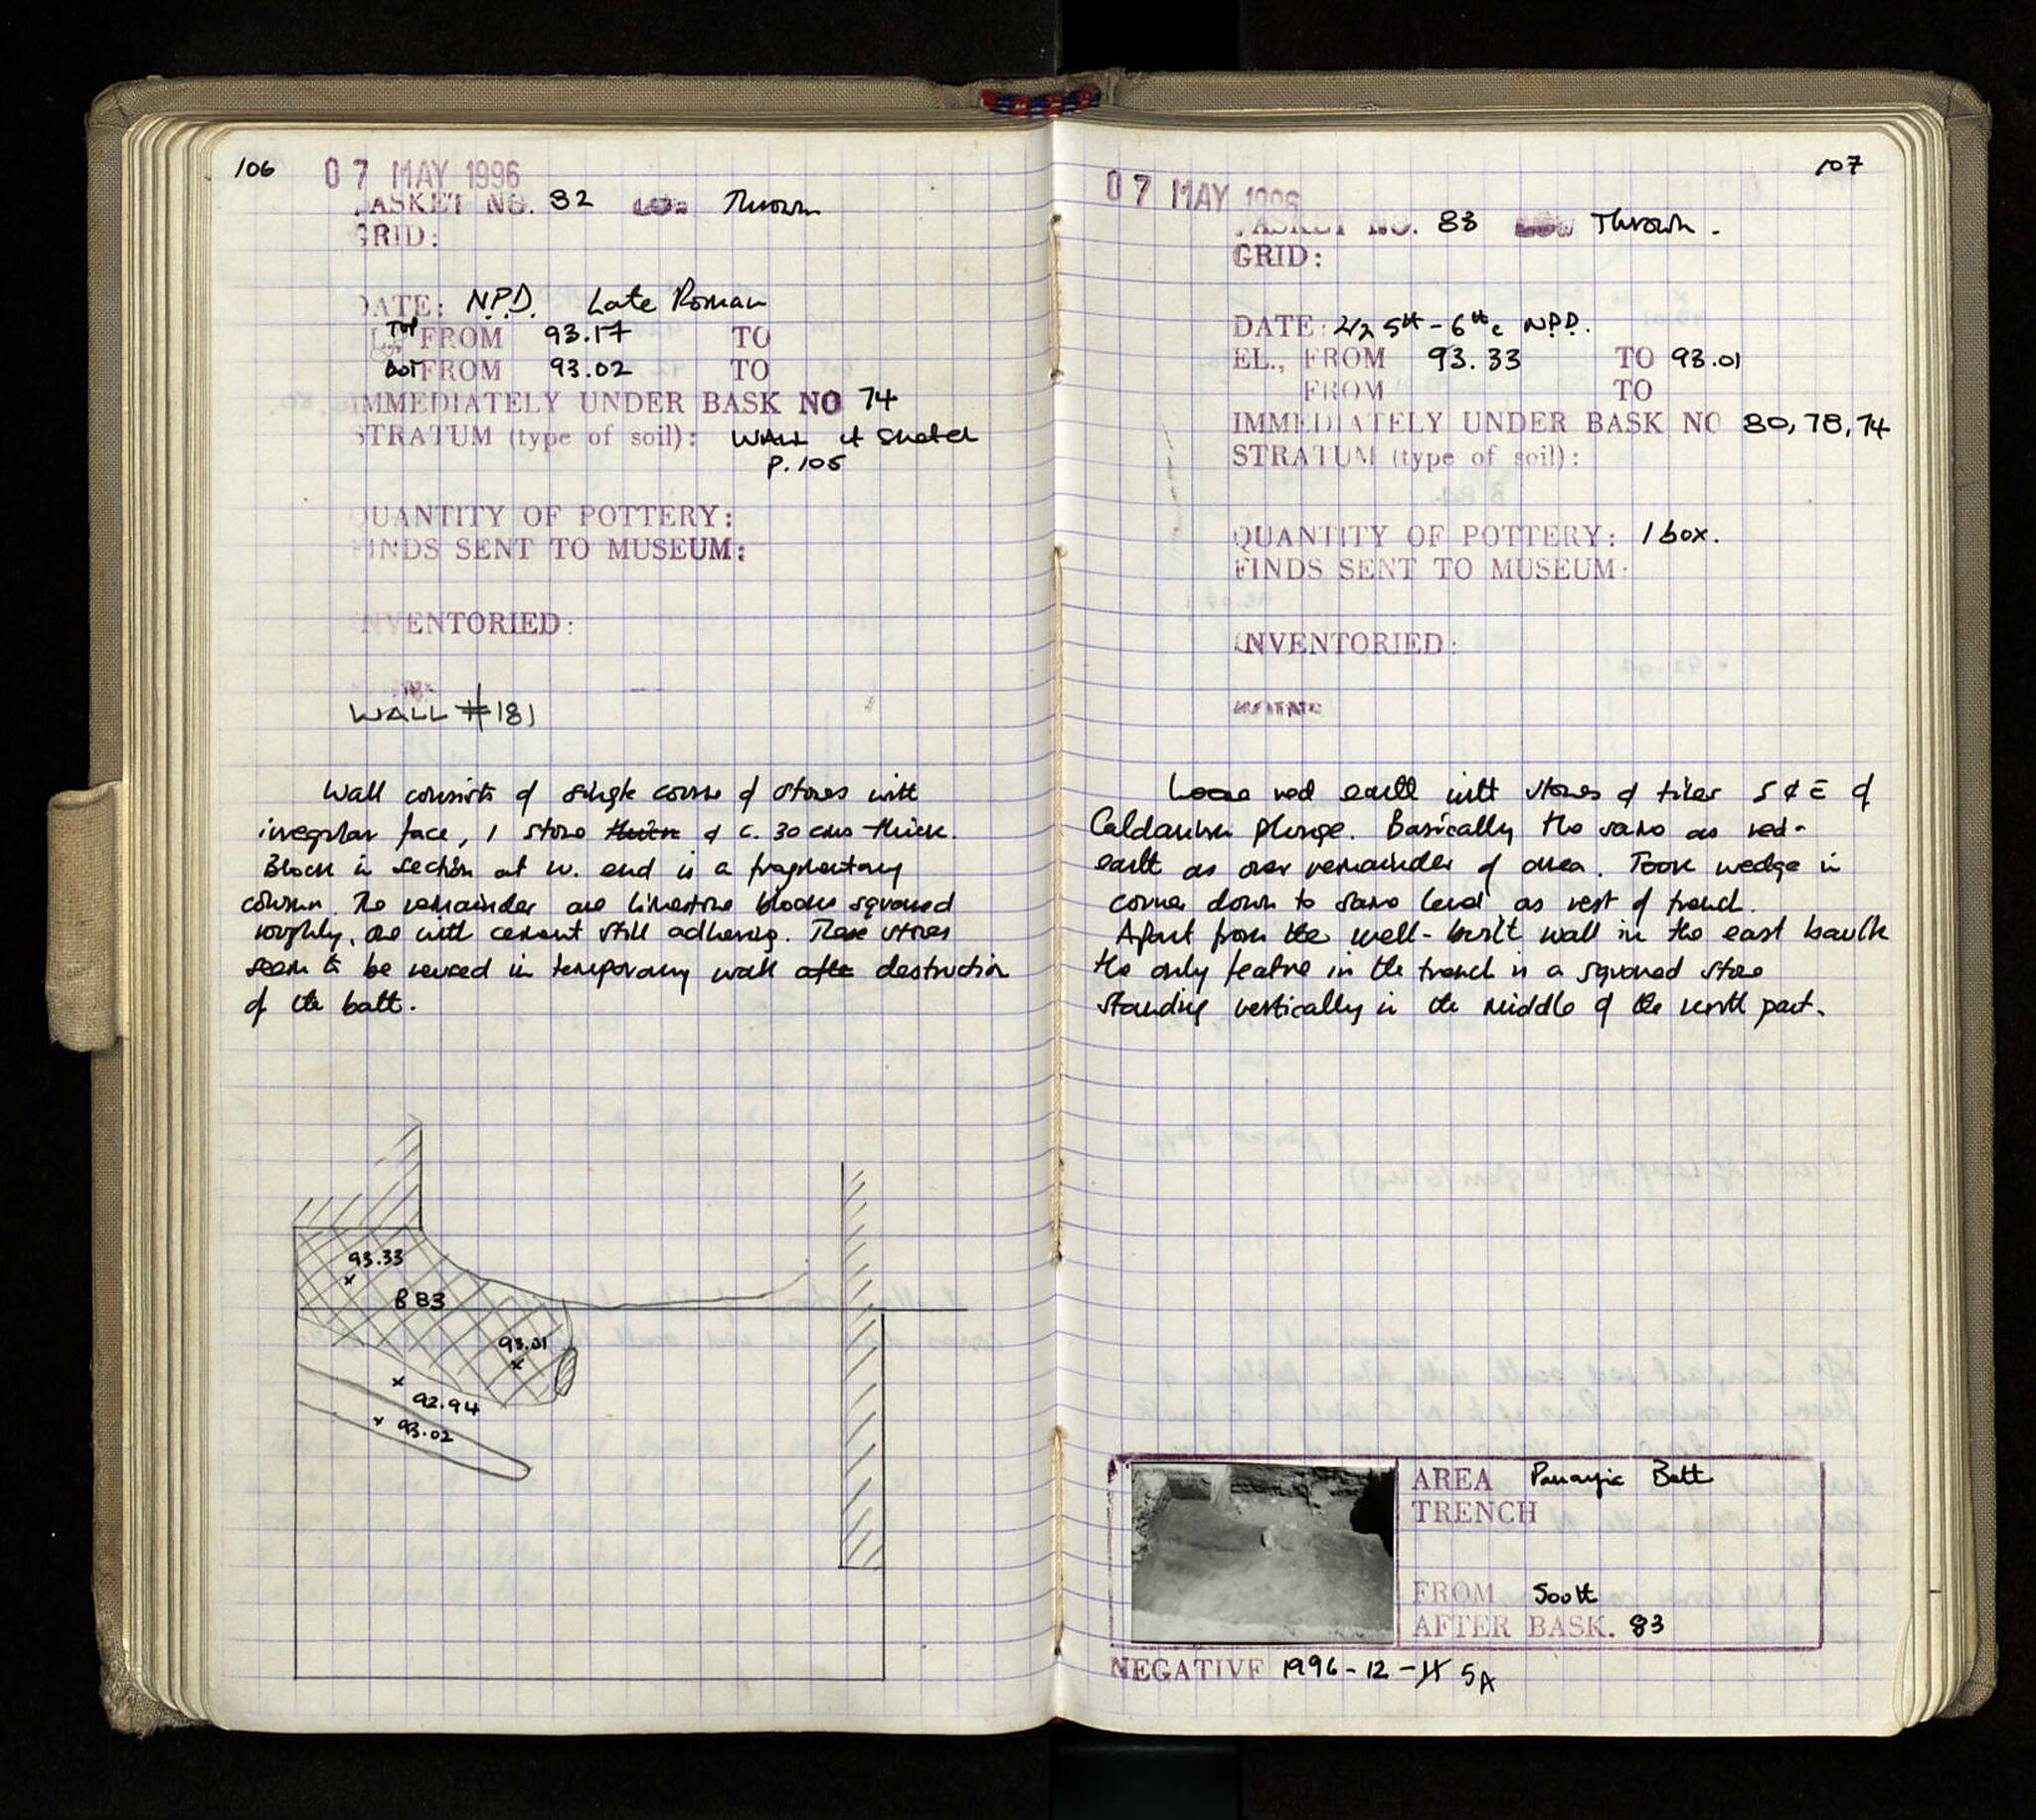 106
07 MAY 1996
BASKET NO. 82 Thrown
GRID:
DATE: N.P.D. Late Roman
TOP FROM 93.17 TO
BOT FROM 93.02 TO
IMMEDIATELY UNDER BASK NO 74
STRATUM (type of soil): WALL cf sketch
p. 105
QUANTITY OF POTTERY:
FINDS SENT TO MUSEUM:
INVENTORIED:
WALL #181
Wall consists of single course of stones with
irregular face, 1 stone thick & c. 30 cms thick.
Block in section at W. end is a fragmentary
column. The remainder are limestone blocks squared
roughly, one with cement still adhering. These stones
seem to be reused in temporary wall after destruction
of the bath.
93.33
B 83
93.01
92.94
93.02
107
07 MAY 1996
BASKET NO. 83 Thrown.
GRID:
DATE: 2/2 5th - 6th c N.P.D.
EL., FROM 93.33 TO 93.01
FROM TO
IMMEDIATELY UNDER BASK NO 80, 78, 74
STRATUM (type of soil):
QUANTITY OF POTTERY: 1 box.
FINDS SENT TO MUSEUM:
INVENTORIED:
Loose red earth with stones & tiles S & E of
Caldarium plunge. Basically the same as red-
earth as over remainder of area. Took wedge in
corner down to same level as rest of trench.
Apart from the well-built wall in the east baulk
the only feature in the trench is a squared stone
standing vertically in the middle of the north part.
AREA Panayia Bath
TRENCH
FROM South
AFTER BASK. 83
NEGATIVE 1996-12- 5A